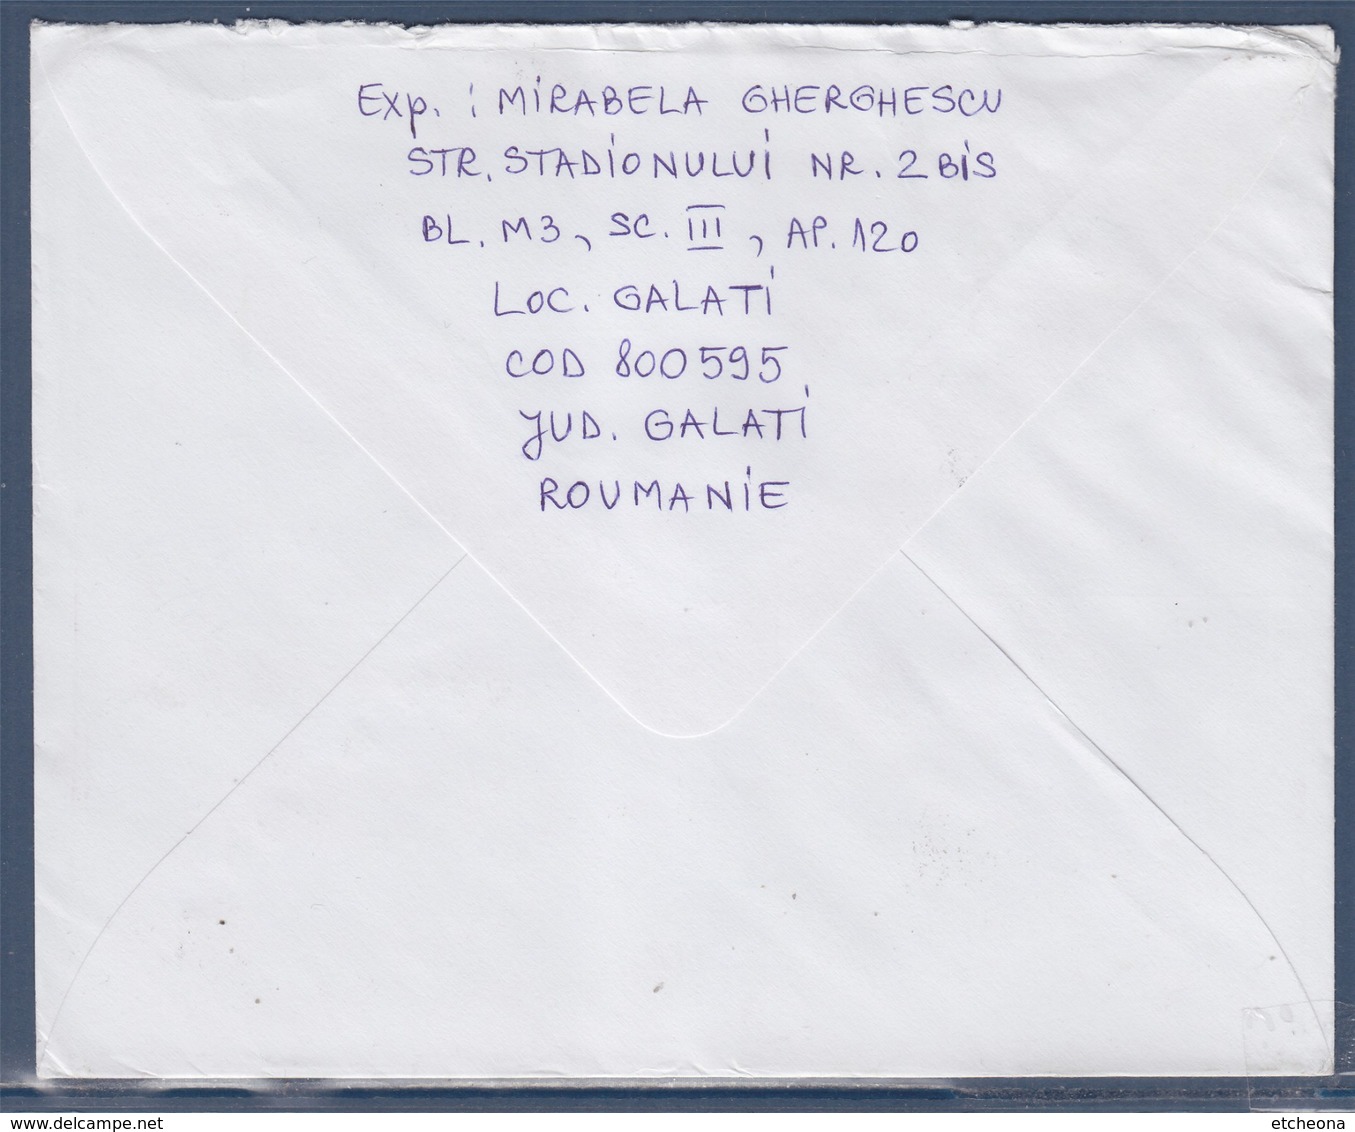 Exp. : MIRABELA GHERGHESCU
STR. STADIONULUI NR. 2 BIS
BL. M3, SC. III, AP. 120
LOC. GALATI
COD 800595
JUD. GALATI
ROUMANIE
www.delcampe.net
etcheona